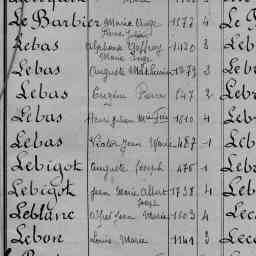 Le Barbier Marie Ange 1572 4 Le
Pierre Julien
Lebas Alphonse Geffroy 1430 3 Leb
Marie Ange
Lebas Auguste Mathurin 1279 3 Leb
Lebas Eugène Pierre 547 2 Leb
Lebas Henri Julien 1610 4 Leb
Lebas Victor Jean Marie 487 1 Leb
Lebigot Auguste Joseph 476 1 Leb
Lebigot Jean Marie Albert 1738 4 Leb
Joseph
Leblanc Alfred Jean Marie 1603 4 Lec
Lebon Louis Marie 1141 3 Lec